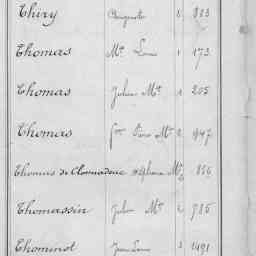 Thiry Auguste 8 813
Thomas Mie Louis 1 173
Thomas Julien Mie 1 205
Thomas Pierre Mie 2 947
Thomas de Closmadeuc Stéphane Mie 2 856
Thomassin Julien Mie 2 786
Thominot Jean Louis 3 1491